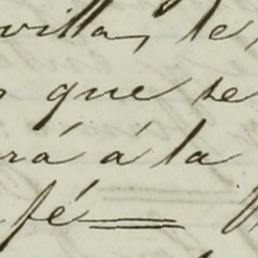 villa, le
que se
rá á la
fé